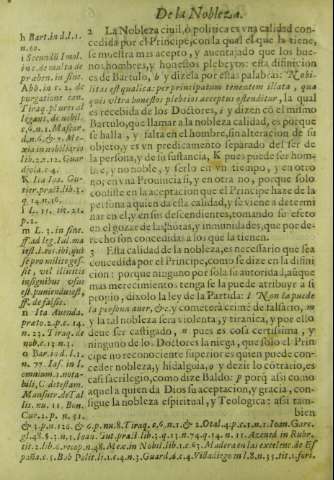 De la Nobleza.
h Bart. in d. l. 1.
n. 60.
i
prohen. in sint.
Abb. in c. 2. de
purgatione can.
Tiraq. plures al
legans, de nobil.
c. 6. n. 1.
d. n. 6. & 7. Me-
nia in nobiliario
lib. 2. c. 12. Guar
diola c. 4.
K Ita Ioa. Gu-
tier. pract. lib. 3.
q. 14. n. 16.
l L. 35. tit. 21.
p. 2.
m L. 3. in fine.
ff. ad leg. Iul. ma
iest. l. eos. ibi, qui
se pro milite ges-
sit, vel illicitis
insignibus usus
est,
ff. de falsis.
n Ita Auenda.
præto. 2. p. c. 14.
n. 23. Tiraq. de
nob. c. 13. n. 3.
o Bar. in d. l. 1.
n. 77. Iaf. in l.
omnium. 2. nota-
bili, C. de testam.
Tal
lis. nu. 11. Bon.
Cur. 2. p. n. 51.
2 La Nobleza civil, ò politica es vna calidad con-
cedida por el Principe, con la qual el que la tiene,
se muestra mas acepto, y auentajado que los bue-
nos hombres, y honestos plebeyos: esta difinicion
es de Bartulo, h y dizela por estas palabras: Nobi-
litas est qualitas per principatum tenentem illata, qua
quis vltra honestos plebeios acceptus ostenditur, i la qual
es recebida de los Doctores, y dizen cõ el mismo
Bartulo, que llamar a la nobleza calidad, es porque
se halla, y falta en el hombre, sin alteracion de su
objeto, y es vn predicamento separado del ser de
la persona, y de su sustancia, K pues puede ser hom-
bre, y no noble, y serlo en vn tiempo, y en otro
no; en vna Prouincia si, y en otra no, porque solo
consiste en la aceptacion que el Principe haze de la
persona a quien da esta calidad, y se viene a deter mi
nar en el, y en sus descendientes, tomando su efecto
en el gozar de las honras, y inmunidades, que por de-
recho son concedidas a los que la tienen.
3 Esta calidad de la nobleza, es necessario que sea
concedida por el Principe, como se dize en la difini
cion: porque ninguno por sola su autoridad, aũque
mas merecimientos tenga se la puede atribuyr a si
propio, dixolo la ley de la Partida: l Non la puede
la persona auer, &c. y cometerà crimẽ de falsario, m
y la tal nobleza sera violenta, y tiranica, y por ello
deue ser castigado, n pues es cosa certissima, y
ninguno de los Doctores la niega, que solo el Prin-
cipe no reconociente superior es quien puede con-
ceder nobleza, y hidalguia, o y dezir lo cõtrario, es
casi sacrilegio, como dize Baldo: p porq̃ assi como
aquel a quien da Dios su aceptacion, y gracia, con-
sigue la nobleza espiritual, y Teologica: assi tam
bien
& 3. p. n. 120. & 6. p. nu. 8. Tiraq. c. 6. n. 1. & 2. Otal. 4. p. c. 1. n. 1. Ioan. Garc.
gl. 48. §. 2. n. 1. Ioan. Gut. pract. lib. 3. q. 13. n. 74. q. 14. n. 15. Azeued. in Rubr.
tit. 2. lib. 6. recop. n. 48. Mex. in lib. 1. c. 63. Madera en las excelenc. de Es
paña c. 5. Bob. Polit. l. 1. c. 4. n. 3. Guard. d. c. 4.